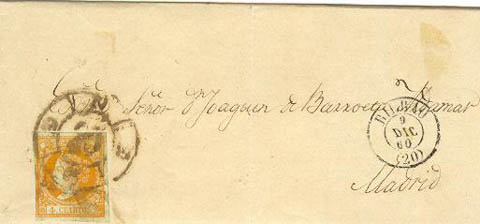 Señor Dn Joaquin de Barroeta Aldamar
BILBAO
9
DIC
60
(20)
Madrid
4 CUARTOS